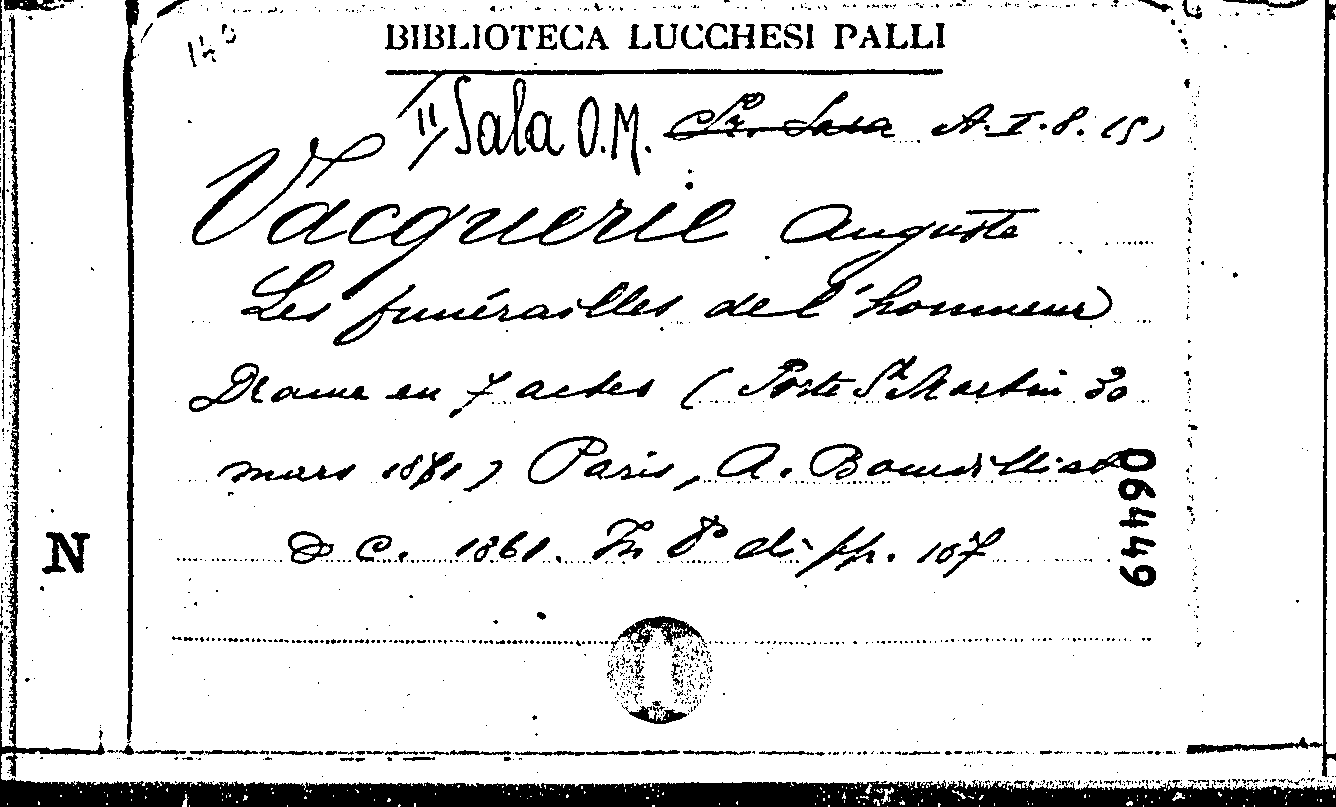 140
BIBLIOTECA LUCCHESI PALLI
II Sala O.M. A.I.8.(5)
Vacquerie Auguste
Les funérailles de l'honneur
Drame en 7 actes (Porte St Martin 30
mars 1861) Paris, A. Bourdilliat
& C. 1861. In 8° di pp. 107
06449
N